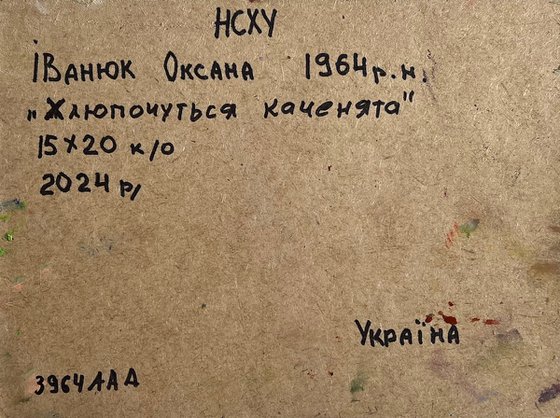 НСХУ
Іванюк Оксана 1964 р.н.
„Хлюпочуться каченята"
15х20 к/о
2024 р/
Україна
3964 ААД